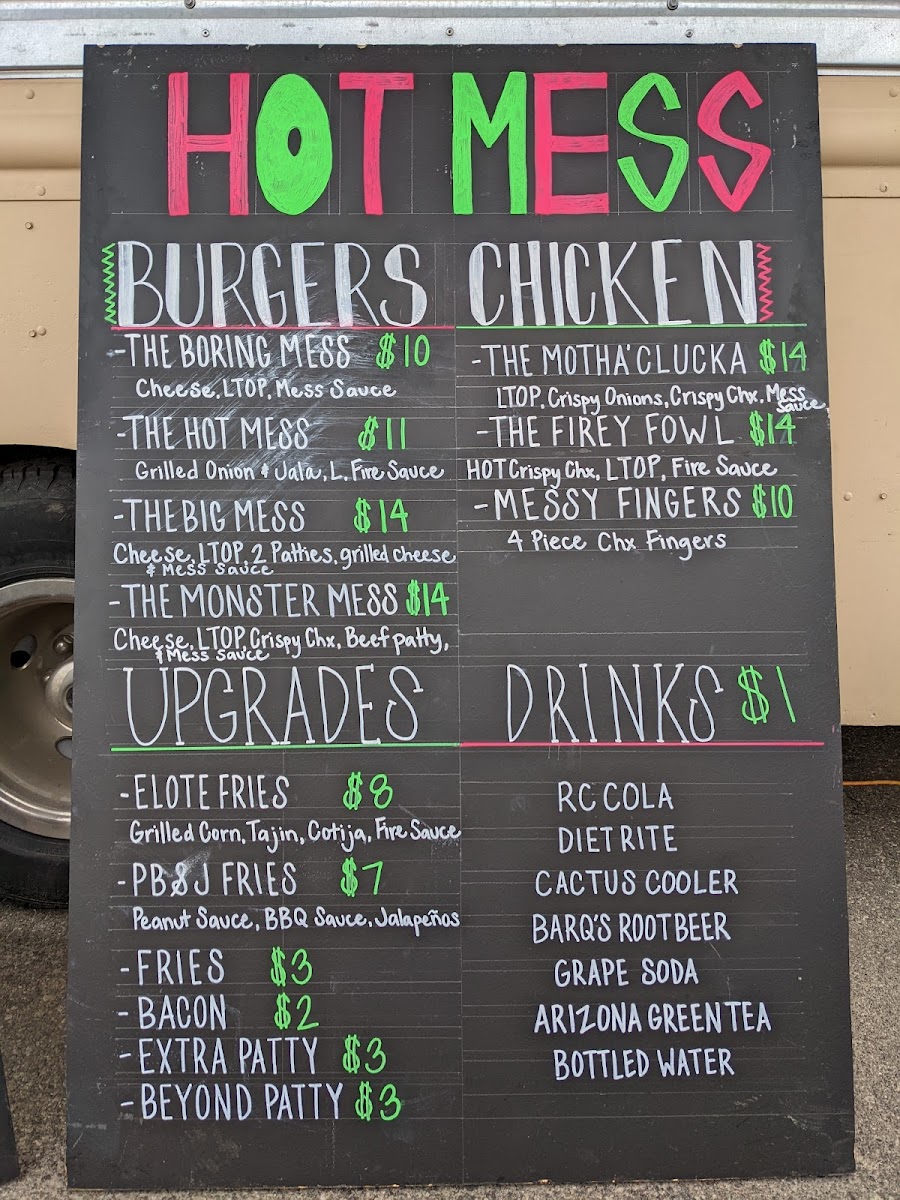 HOT MESS
BURGERS
-THE BORING MESS $10
Cheese, LTOP, Mess Sauce
-THE HOT MESS $11
Grilled Onion & Jala, L, Fire Sauce
-THE BIG MESS $14
Cheese, LTOP, 2 Patties, grilled cheese
& Mess Sauce
-THE MONSTER MESS $14
Cheese, LTOP, Crispy Chx, Beef patty,
& Mess Sauce
CHICKEN
-THE MOTHA'CLUCKA $14
LTOP, Crispy Onions, Crispy Chx, Mess
Sauce
-THE FIREY FOWL $14
HOT Crispy Chx, LTOP, Fire Sauce
-MESSY FINGERS $10
4 Piece Chx Fingers
UPGRADES
-ELOTE FRIES $8
Grilled Corn, Tajin, Cotija, Fire Sauce
-PB&J FRIES $7
Peanut Sauce, BBQ Sauce, Jalapeños
-FRIES $3
-BACON $2
-EXTRA PATTY $3
-BEYOND PATTY $3
DRINKS $1
RC COLA
DIET RITE
CACTUS COOLER
BARQ'S ROOTBEER
GRAPE SODA
ARIZONA GREEN TEA
BOTTLED WATER